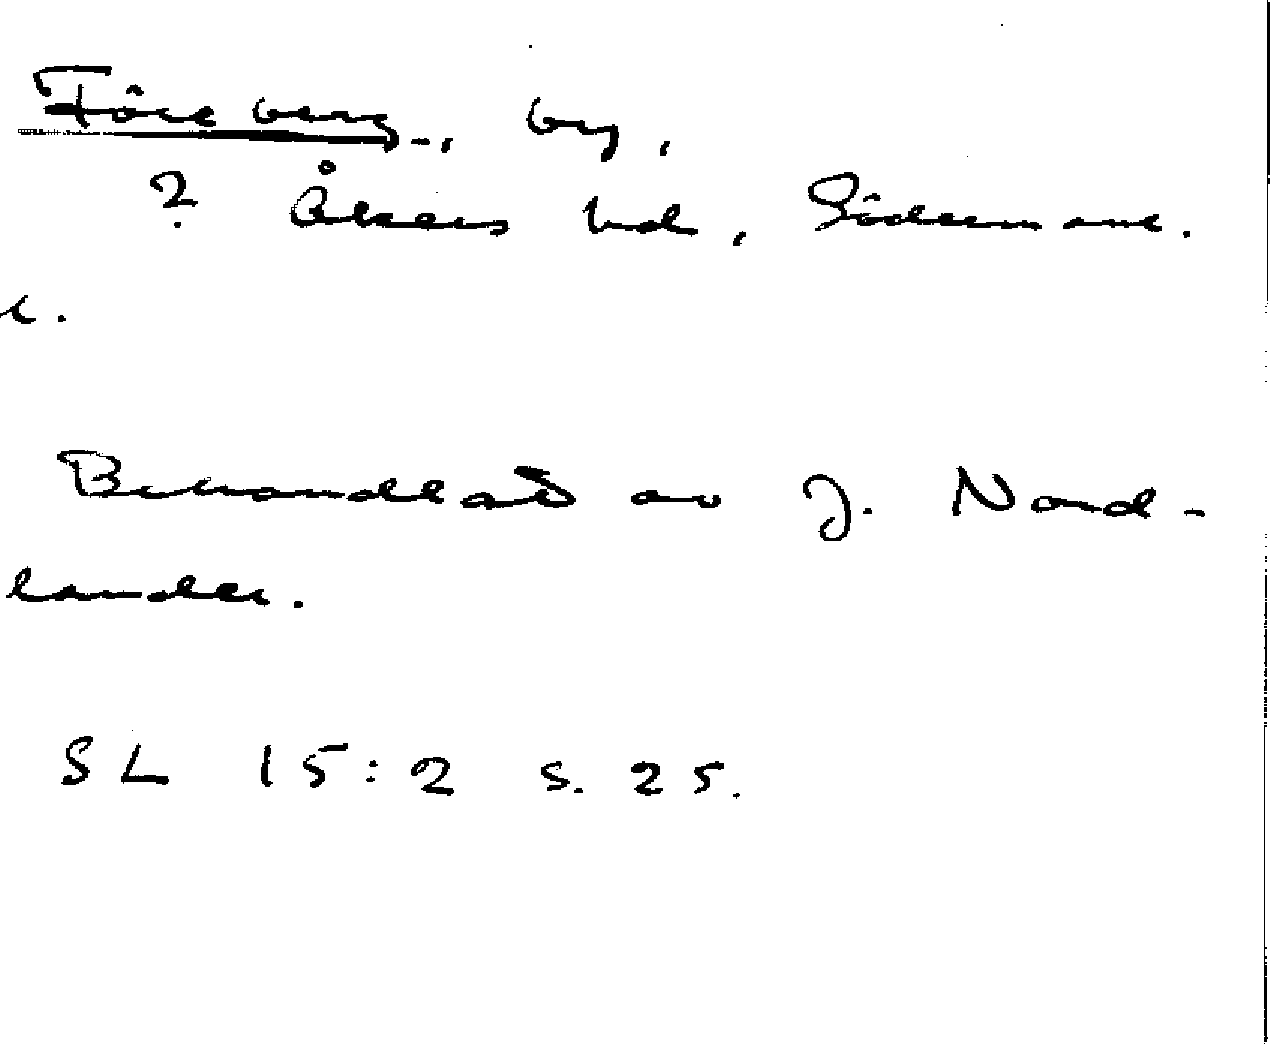 Föreberg, by,
? Åkers hd, Södermanl.
Behandlat av J. Nord-
lander.
SL 15:2 s. 25.